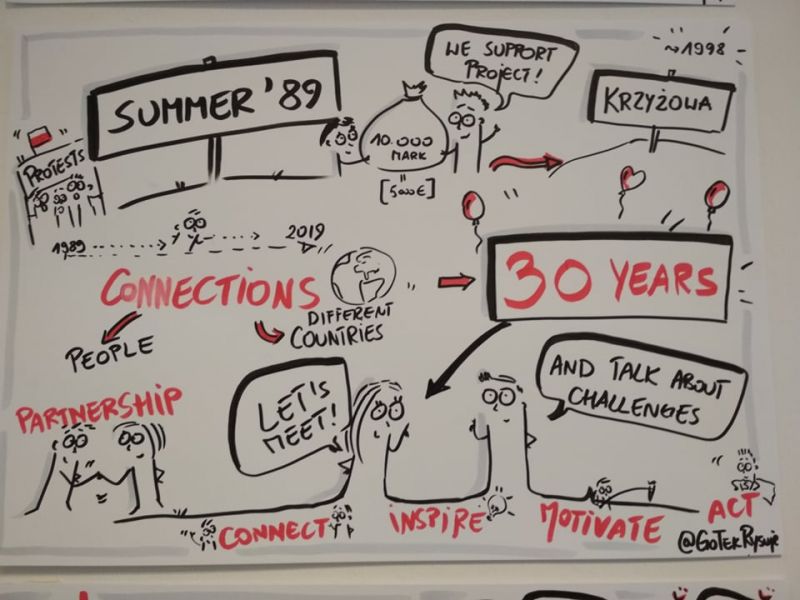 SUMMER '89
WE SUPPORT
PROJECT!
~1998
KRZYŻOWA
10.000
MARK
[5000€]
PROTESTS
1989
2019
CONNECTIONS
DIFFERENT
COUNTRIES
30 YEARS
PEOPLE
PARTNERSHIP
LET'S
MEET!
AND TALK ABOUT
CHALLENGES
CONNECT
INSPIRE
MOTIVATE
ACT
@GOTEKRYSUJE